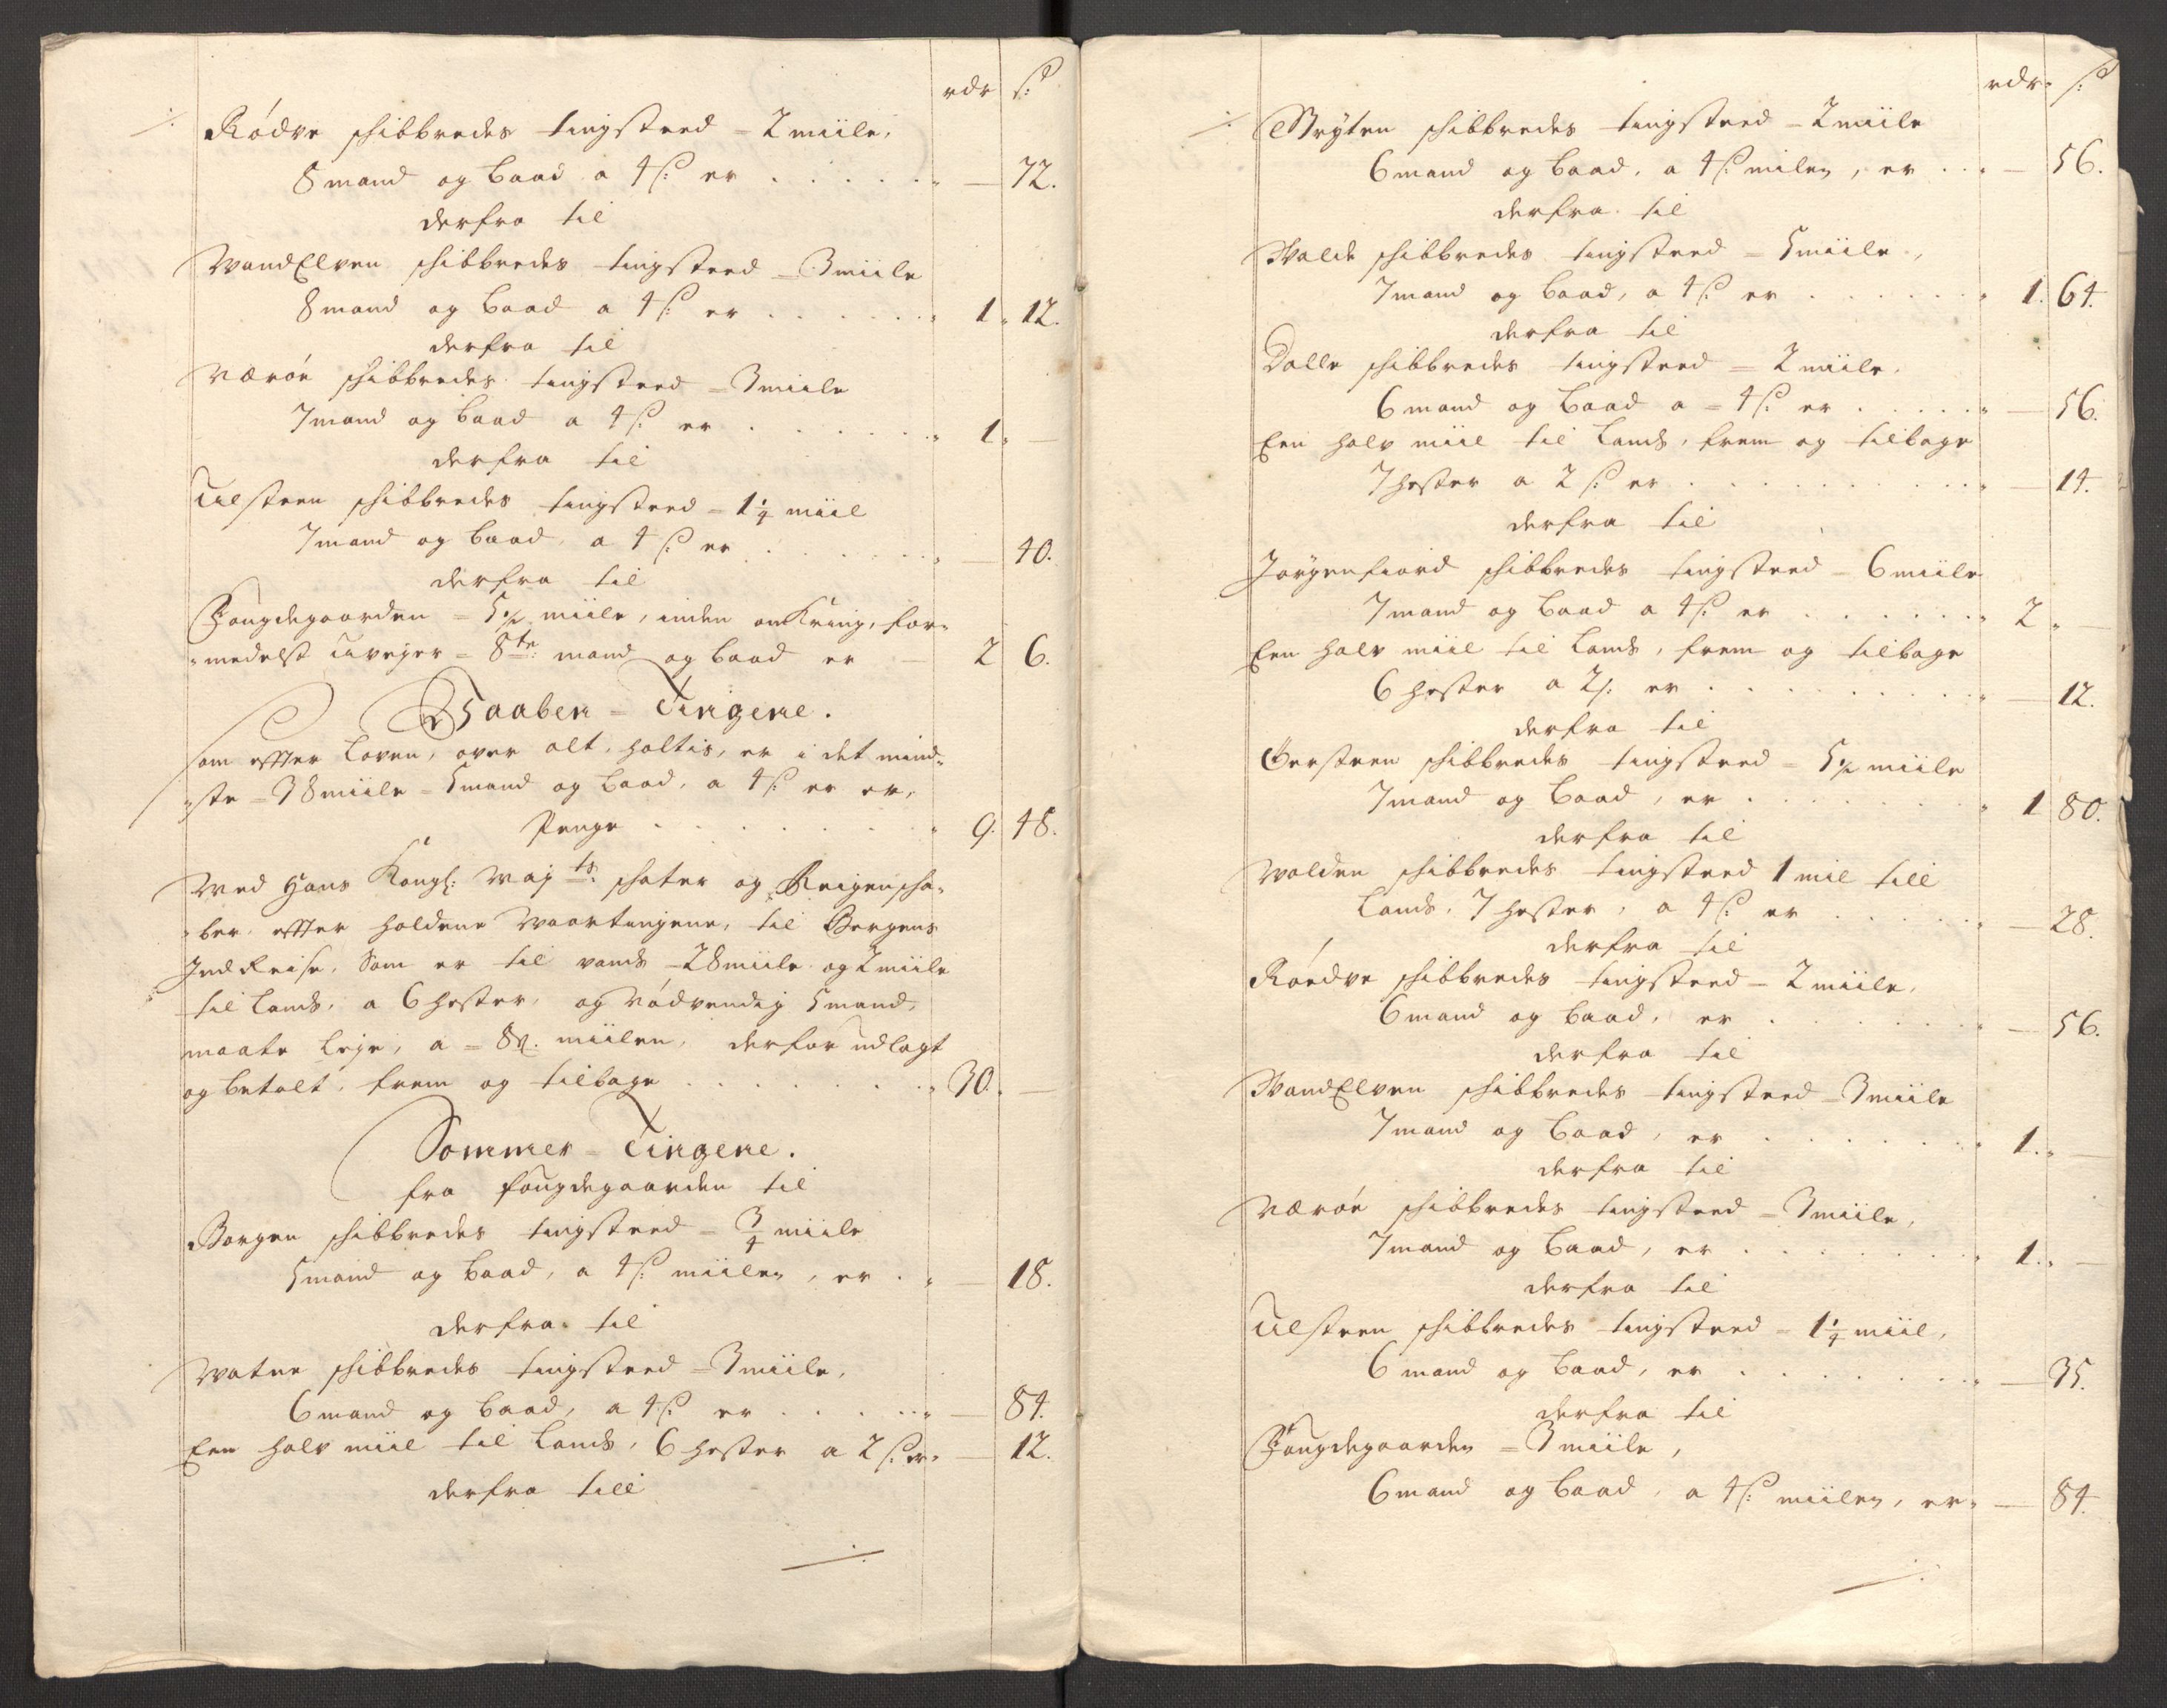 rdr ſ:
Rødve schibbredes tingsteed = 2 miile,
8 mand og baad a 4 ſ: er . . . . . . — 72.
derfra til
WandElven schibbredes tingsteed = 3 miile
8 mand og baad a 4 ſ: er . . . . . . 1. 12.
derfra til
Nærøe schibbredes tingsteed = 3 miile
7 mand og baad a 4 ſ: er . . . . . . 1. —
derfra til
Ulsteen schibbredes tingsteed = 1 1/4 miil
7 mand og baad a 4 ſ: er . . . . . . — 40.
derfra til
Fougdegaarden = 5 1/2 miile, inden omkring, for-
medelst uveyer = 8te: mand og baad er — 2 6.
Waaben = Tingene.
som effter Loven, over alt, holtis, er i det mind-
ste = 38 miile = 5 mand og baad, a 4 ſ: er er,
Penge . . . . . . . 9. 48.
Med Hans Kongl: Maj ts: schatter og Reigenscha-
ber effter holdene Waartingene, til Bergens
Jnd Reise, Som er til vands = 28 miile og 2 miile
til Lands, a 6 hester, og Nødvendig 5 mand,
maate leye, a = 8 miilen, derfor udlagt
og betalt, frem og tilbage . . . . . . . 30. —
Sommer = Tingene.
fra fougdegaarden til
Borgen schibbredes tingsteed = 3/4 miile
5 mand og baad, a 4 ſ: miilen, er . . — 18.
derfra til
Watne schibbredes tingsteed = 3 miile,
6 mand og baad, a 4 ſ: er . . . . . — 84.
Een halv miil til Lands, 6 hester a 2 ſ: er — 12.
derfra till
rdr. ſ:
Strÿten schibbredes tingsteed = 2 miile
6 mand og baad, a 4 ſ: milen, er . . . — 56.
derfra til
Walde schibbredes tingsteed = 5 miile,
7 mand og baad, a 4 ſ: er . . . . . . 1. 64.
derfra til
Dalle schibbredes tingsteed = 2 miile,
6 mand og baad a = 4 ſ: er . . . . . — 56.
Een halv miil til Lands, frem og tilbage
7 hester a 2 ſ: er . . . . . . . . . . — 14.
derfra til
Jørgenfiord schibbredes tingsteed = 6 miile
7 mand og baad a 4 ſ: er . . . . . . 2. —
Een halv miil til Lands, frem og tilbage
6 hester a 2 ſ: er . . . . . . . . . — 12.
derfra til
Gersteen schibbredes tingsteed = 5 1/2 miile
7 mand og baad, er . . . . . . . . 1 80.
derfra til
Wolden schibbredes tingsteed 1 mil till
Lands, 7 hester, a 4 ſ: er . . . . . — 28.
derfra til
Røedve schibbredes tingsteed = 2 miile,
6 mand og baad, er . . . . . . . — 56.
derfra til
WandElven schibbredes tingsteed = 3 miile
7 mand og baad, er . . . . . . . 1. —
derfra til
Nærøe schibbredes tingsteed = 3 miile,
7 mand og baad, er . . . . . . . 1. —
derfra til
Ulsteen schibbredes tingsteed = 1 1/4 miil,
6 mand og baad, er . . . . . . . — 35.
derfra til
Fougdegaarden = 3 miile,
6 mand og baad, a 4 ſ: miilen, er — 84.